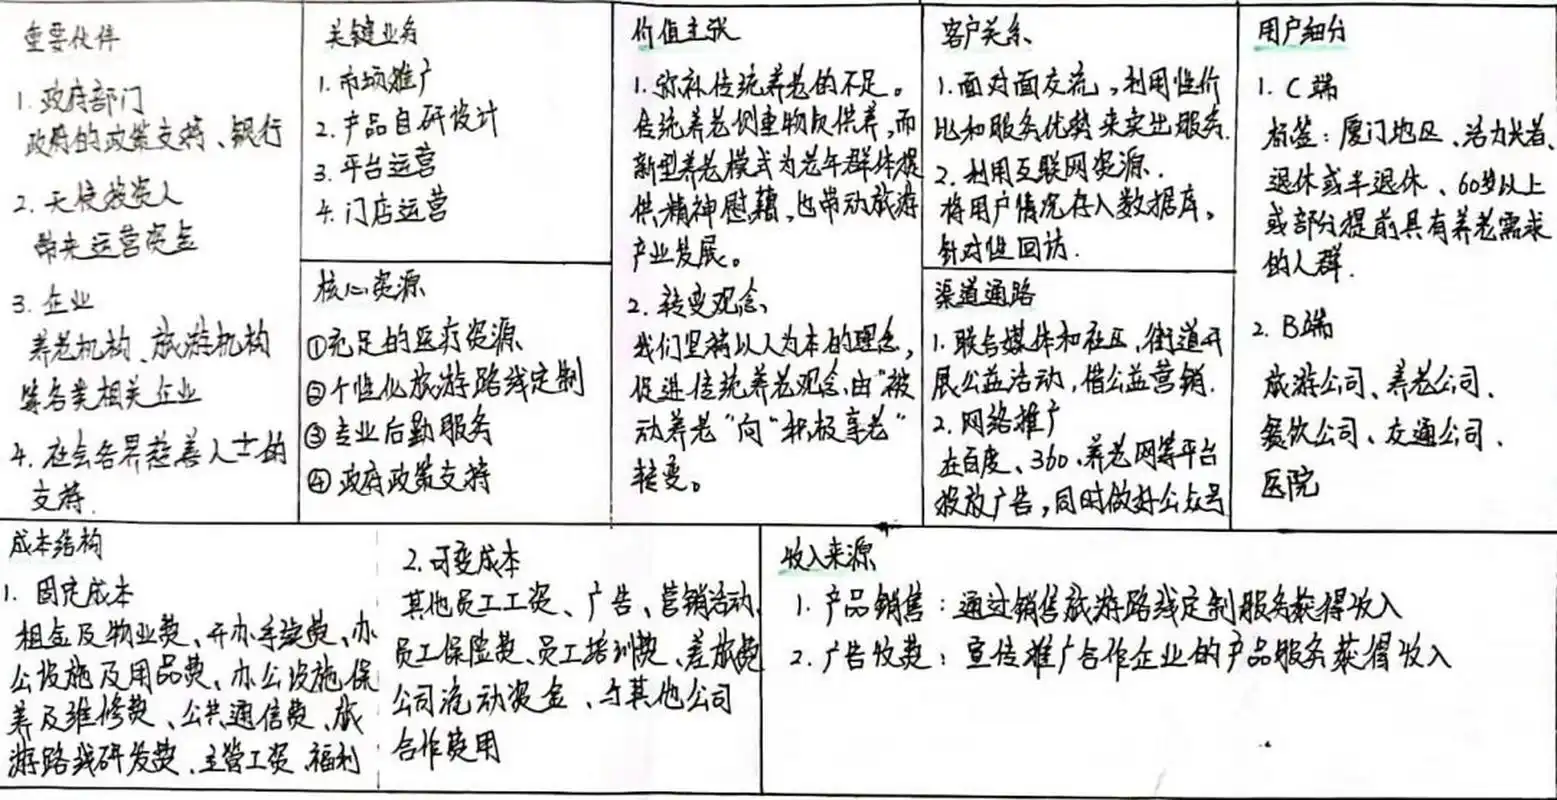 重要伙伴
1. 政府部门
政府的政策支持、银行
2. 天使投资人
带来运营资金
3. 企业
养老机构、旅游机构
等各类相关企业
4. 社会各界慈善人士的
支持.
关键业务
1. 市场推广
2. 产品自研设计
3. 平台运营
4. 门店运营
核心资源
①充足的医疗资源
②个性化旅游路线定制
③专业后勤服务
④政府政策支持
价值主张
1. 弥补传统养老的不足。
传统养老侧重物质供养,而
新型养老模式为老年群体提
供精神慰藉,也带动旅游
产业发展。
2. 转变观念
我们坚持以人为本的理念,
促进传统养老观念由"被
动养老"向"积极享老"
转变。
客户关系
1. 面对面交流,利用性价
比和服务优势来卖出服务.
2. 利用互联网资源.
将用户情况存入数据库。
针对性回访.
渠道通路
1. 联合媒体和社区,街道开
展公益活动,借公益营销.
2. 网络推广
在百度、360、养老网等平台
投放广告,同时做好公众号
用户细分
1. C端
标签:厦门地区、活力老者、
退休或半退休、60岁以上
或部分提前具有养老需求
的人群.
2. B端
旅游公司、养老公司、
餐饮公司、交通公司、
医院
成本结构
1. 固定成本
租金及物业费、开办手续费、办
公设施及用品费、办公设施保
养及维修费、公共通信费、旅
游路线研发费、主管工资、福利
2. 可变成本
其他员工工资、广告、营销活动、
员工保险费、员工培训费、差旅费
公司流动资金、与其他公司
合作费用
收入来源
1. 产品销售:通过销售旅游路线定制服务获得收入
2. 广告收费:宣传推广合作企业的产品服务获得收入